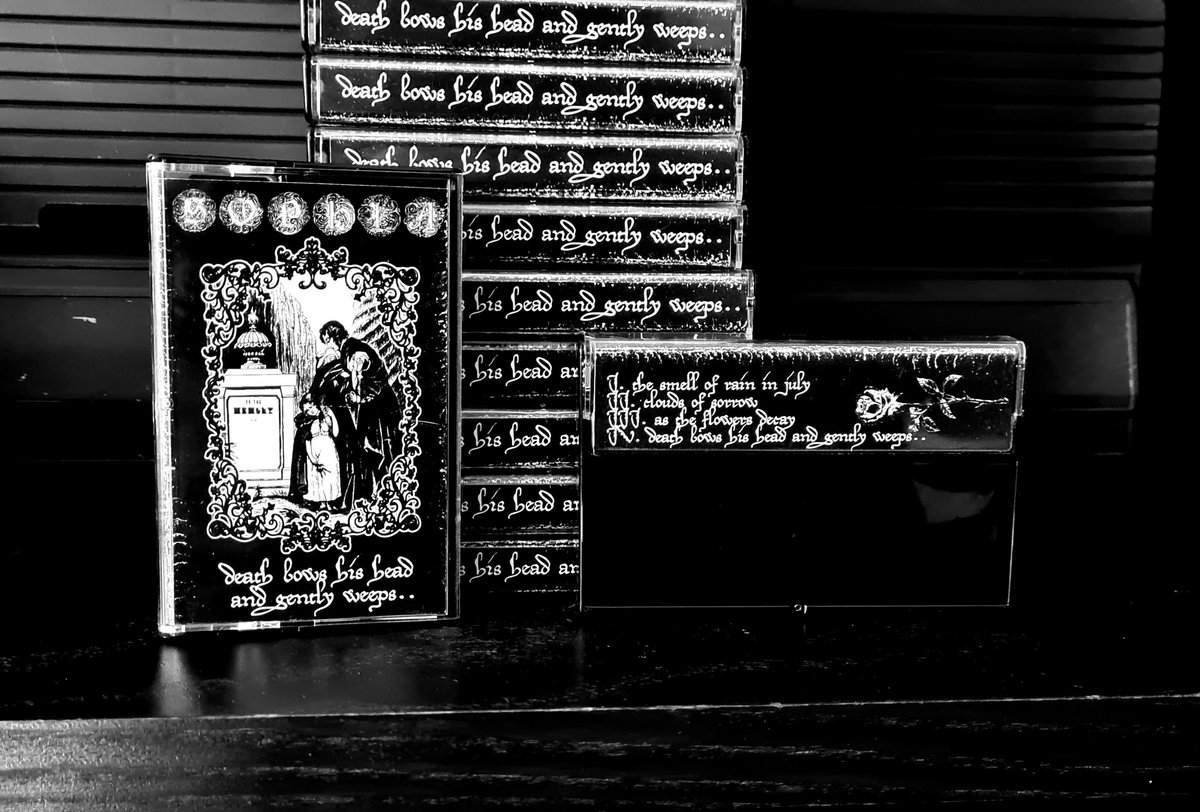 death bows his head and gently weeps..
death bows his head and gently weeps..
death bows his head and gently weeps..
his head and gently weeps..
his head and gently weeps..
his head an
his head an
his head an
his head an
SOPHIA
TO THE
MEMORY
death bows his head
and gently weeps..
I. the smell of rain in july
II. clouds of sorrow
III. as the flowers decay
IV. death bows his head and gently weeps..